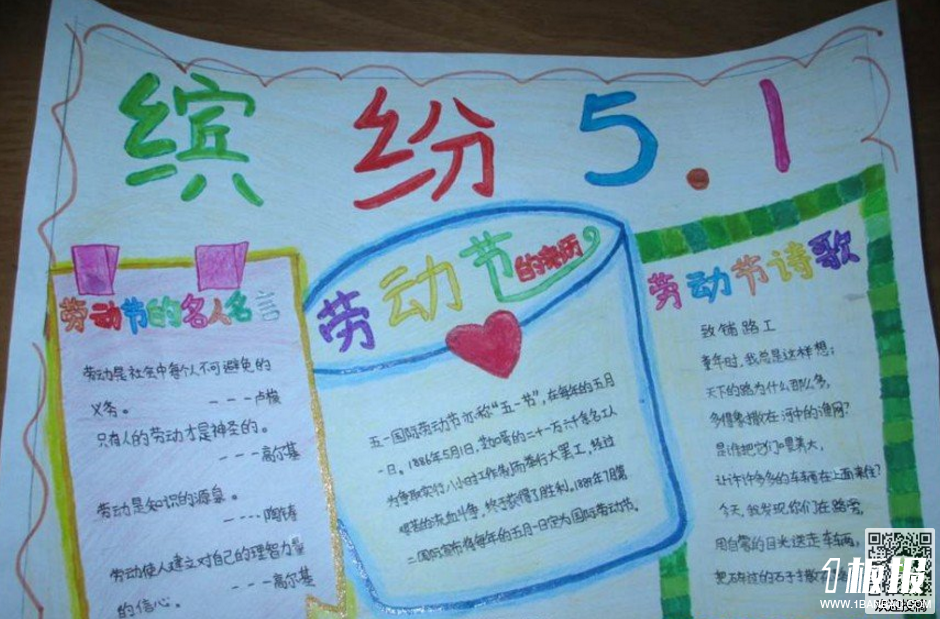 缤纷5.1
劳动节的名人名言
劳动是社会中每个人不可避免的
义务。
---卢梭
只有人的劳动才是神圣的。
---高尔基
劳动是知识的源泉。
----陶铸
劳动使人建立对自己的理智力量
---高尔基
的信心。
劳动节的来历
五一国际劳动节亦称“五一节”,在每年的五月
一日。1886年5月1日,芝加哥的二十一万六千余名工人
为争取实行八小时工作制而举行大罢工,经过
艰苦的流血斗争,终于获得了胜利。1889年7月第
二国际宣布将每年的五月一日定为国际劳动节。
劳动节诗歌
致铺路工
童年时,我总是这样想:
天下的路为什么那么多,
多得象撒在河中的渔网?
是谁把它们
让许许多多的车辆在上面来往?
今天,我发现你们在路旁,
用自豪的目光送走车辆,
把石子
1板报
WWW.1BANBAO.COM
欢迎投稿